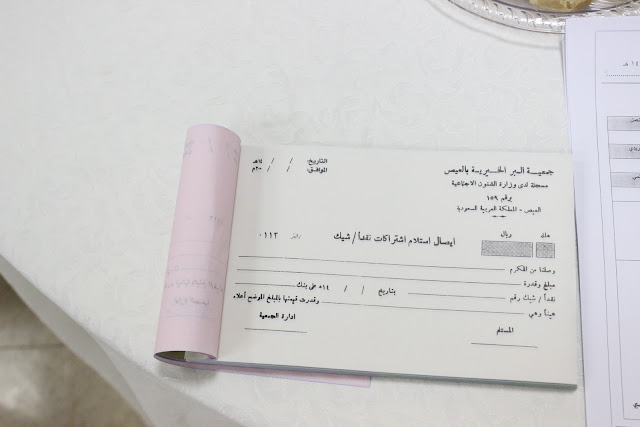 جمعيـة الـبر الخـيرية بالعيص
مسجلة لدى وزارة الشئون الاجتماعية
برقم ١٥٩
العيص - المملكة العربية السعودية
التاريخ: / / ١٤هـ
الموافق: / / ٢٠م
هلله ريال
ايصال استلام اشتراكات نقداً / شيك
٠١١٣
وصلنا من المكرم
مبلغ وقدرة
نقداً / شيك رقم بتاريخ / / ١٤هـ على بنك
عيناً وهي وقدرت قيمتها بالمبلغ الموضح أعلاه
المستلم ادارة الجمعية